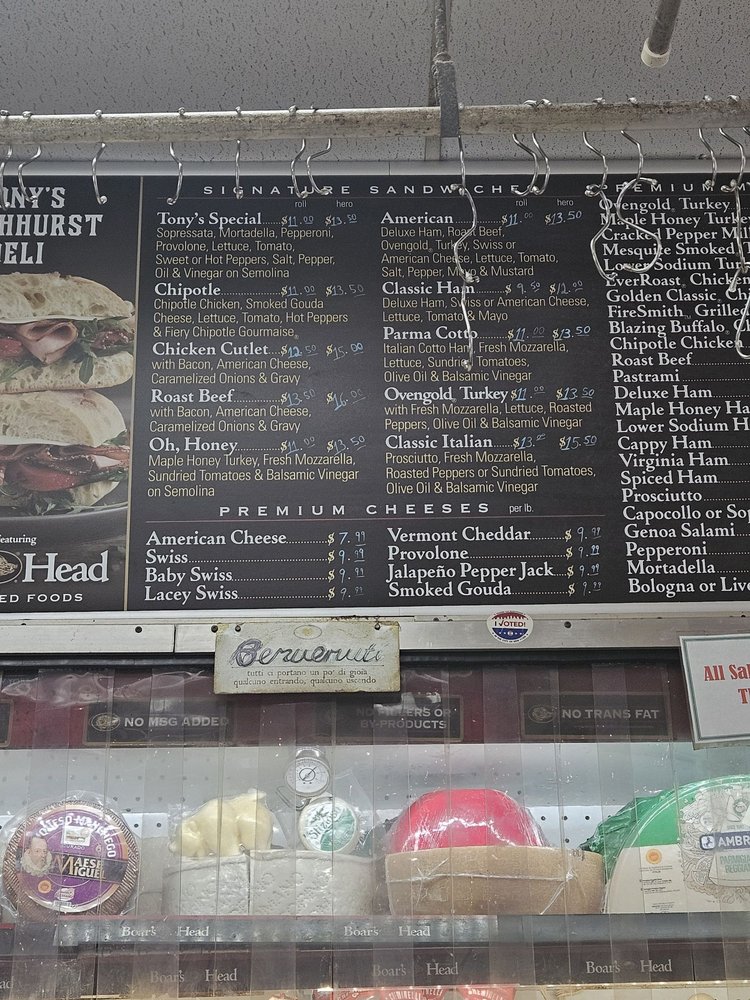 ONY'S
HHURST
ELI
eaturing
Head
ED FOODS
SIGNATURE SANDWICHE
roll hero
Tony's Special $11.00 $13.50
Sopressata, Mortadella, Pepperoni,
Provolone, Lettuce, Tomato,
Sweet or Hot Peppers, Salt, Pepper,
Oil & Vinegar on Semolina
Chipotle $11.00 $13.50
Chipotle Chicken, Smoked Gouda
Cheese, Lettuce, Tomato, Hot Peppers
& Fiery Chipotle Gourmaise®
Chicken Cutlet $12.50 $15.00
with Bacon, American Cheese,
Caramelized Onions & Gravy
Roast Beef $13.50 $16.00
with Bacon, American Cheese,
Caramelized Onions & Gravy
Oh, Honey $11.00 $13.50
Maple Honey Turkey, Fresh Mozzarella,
Sundried Tomatoes & Balsamic Vinegar
on Semolina
roll hero
American $11.00 $13.50
Deluxe Ham, Roast Beef,
Ovengold® Turkey, Swiss or
American Cheese, Lettuce, Tomato,
Salt, Pepper, Mayo & Mustard
Classic Ham $9.50 $12.00
Deluxe Ham, Swiss or American Cheese,
Lettuce, Tomato & Mayo
Parma Cotto $11.00 $13.50
Italian Cotto Ham, Fresh Mozzarella,
Lettuce, Sundried Tomatoes,
Olive Oil & Balsamic Vinegar
Ovengold® Turkey $11.00 $13.50
with Fresh Mozzarella, Lettuce, Roasted
Peppers, Olive Oil & Balsamic Vinegar
Classic Italian $13.00 $15.50
Prosciutto, Fresh Mozzarella,
Roasted Peppers or Sundried Tomatoes,
Olive Oil & Balsamic Vinegar
PREMIUM CHEESES per lb.
American Cheese $7.99
Swiss $9.99
Baby Swiss $9.99
Lacey Swiss $9.99
Vermont Cheddar $9.99
Provolone $9.99
Jalapeño Pepper Jack $9.99
Smoked Gouda $9.99
PREMIUM
Ovengold® Turkey
Maple Honey Turke
Cracked Pepper Mill
Mesquite Smoked
Lower Sodium Tur
EverRoast® Chicken
Golden Classic® Ch
FireSmith™ Grille
Blazing Buffalo®
Chipotle Chicken
Roast Beef
Pastrami
Deluxe Ham
Maple Honey Ha
Lower Sodium H
Cappy Ham
Virginia Ham
Spiced Ham
Prosciutto
Capocollo or Sop
Genoa Salami
Pepperoni
Mortadella
Bologna or Live
I VOTED!
Benvenuti
tutti ci portano un po' di gioia
qualcuno entrando, qualcuno uscendo
All Sal
T
NO MSG ADDED
NO FILLERS OR
BY-PRODUCTS
NO TRANS FAT
QUESO MANCHEGO
MAESE
MIGUEL
AMBR
Boar's Head
Boar's Head
Boar's Head
Boar's Head
Boar's Head